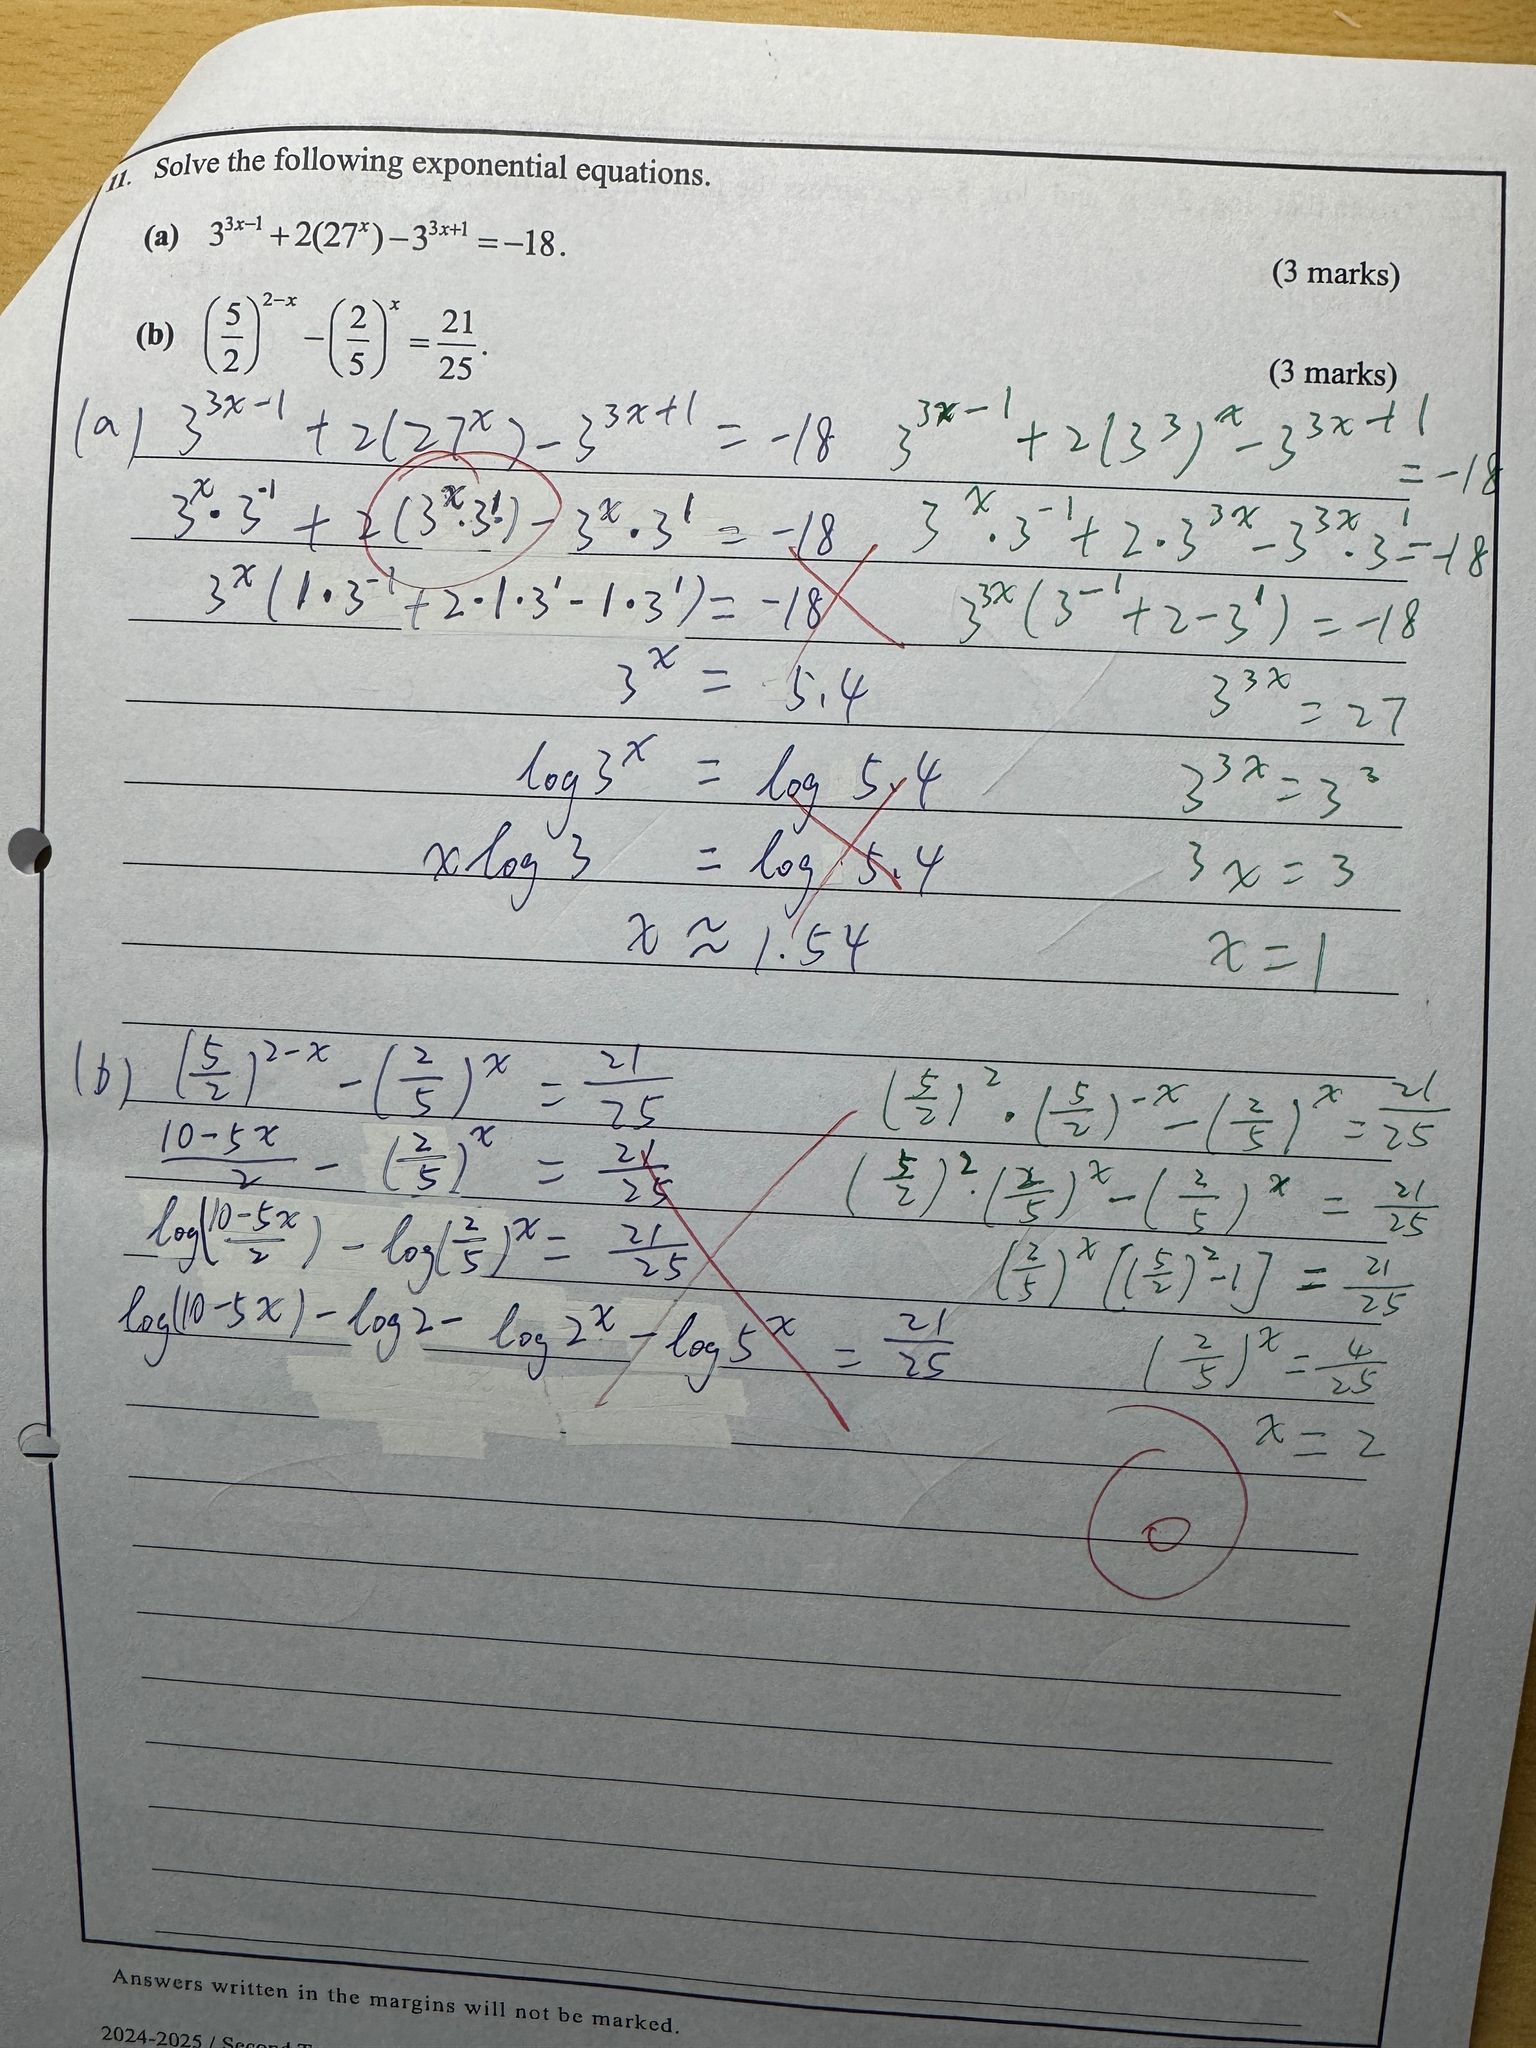 11. Solve the following exponential equations.
(a) 3^{3x−1} + 2(27^x) − 3^{3x+1} = −18.
(3 marks)
(b) (5/2)^{2−x} − (2/5)^x = 21/25.
(3 marks)
(a) 3^{3x-1} + 2(27^x) - 3^{3x+1} = -18
3^x · 3^{-1} + 2(3^x · 3^1) - 3^x · 3^1 = -18
3^x (1·3^{-1} + 2·1·3^1 - 1·3^1) = -18
3^x = 5.4
log 3^x = log 5.4
x log 3 = log 5.4
x ≈ 1.54
3^{3x-1} + 2(3^3)^x - 3^{3x+1}
= -18
3^x · 3^{-1} + 2 · 3^{3x} - 3^{3x} · 3^1 = -18
3^{3x} (3^{-1} + 2 - 3^1) = -18
3^{3x} = 27
3^{3x} = 3^3
3x = 3
x = 1
(b) (5/2)^{2-x} - (2/5)^x = 21/25
(10-5x)/2 - (2/5)^x = 21/25
log((10-5x)/2) - log(2/5)^x = 21/25
log(10-5x) - log 2 - log 2^x - log 5^x = 21/25
(5/2)^2 · (5/2)^{-x} - (2/5)^x = 21/25
(5/2)^2 · (2/5)^x - (2/5)^x = 21/25
(2/5)^x [(5/2)^2 - 1] = 21/25
(2/5)^x = 4/25
x = 2
0
Answers written in the margins will not be marked.
2024-2025 / Second